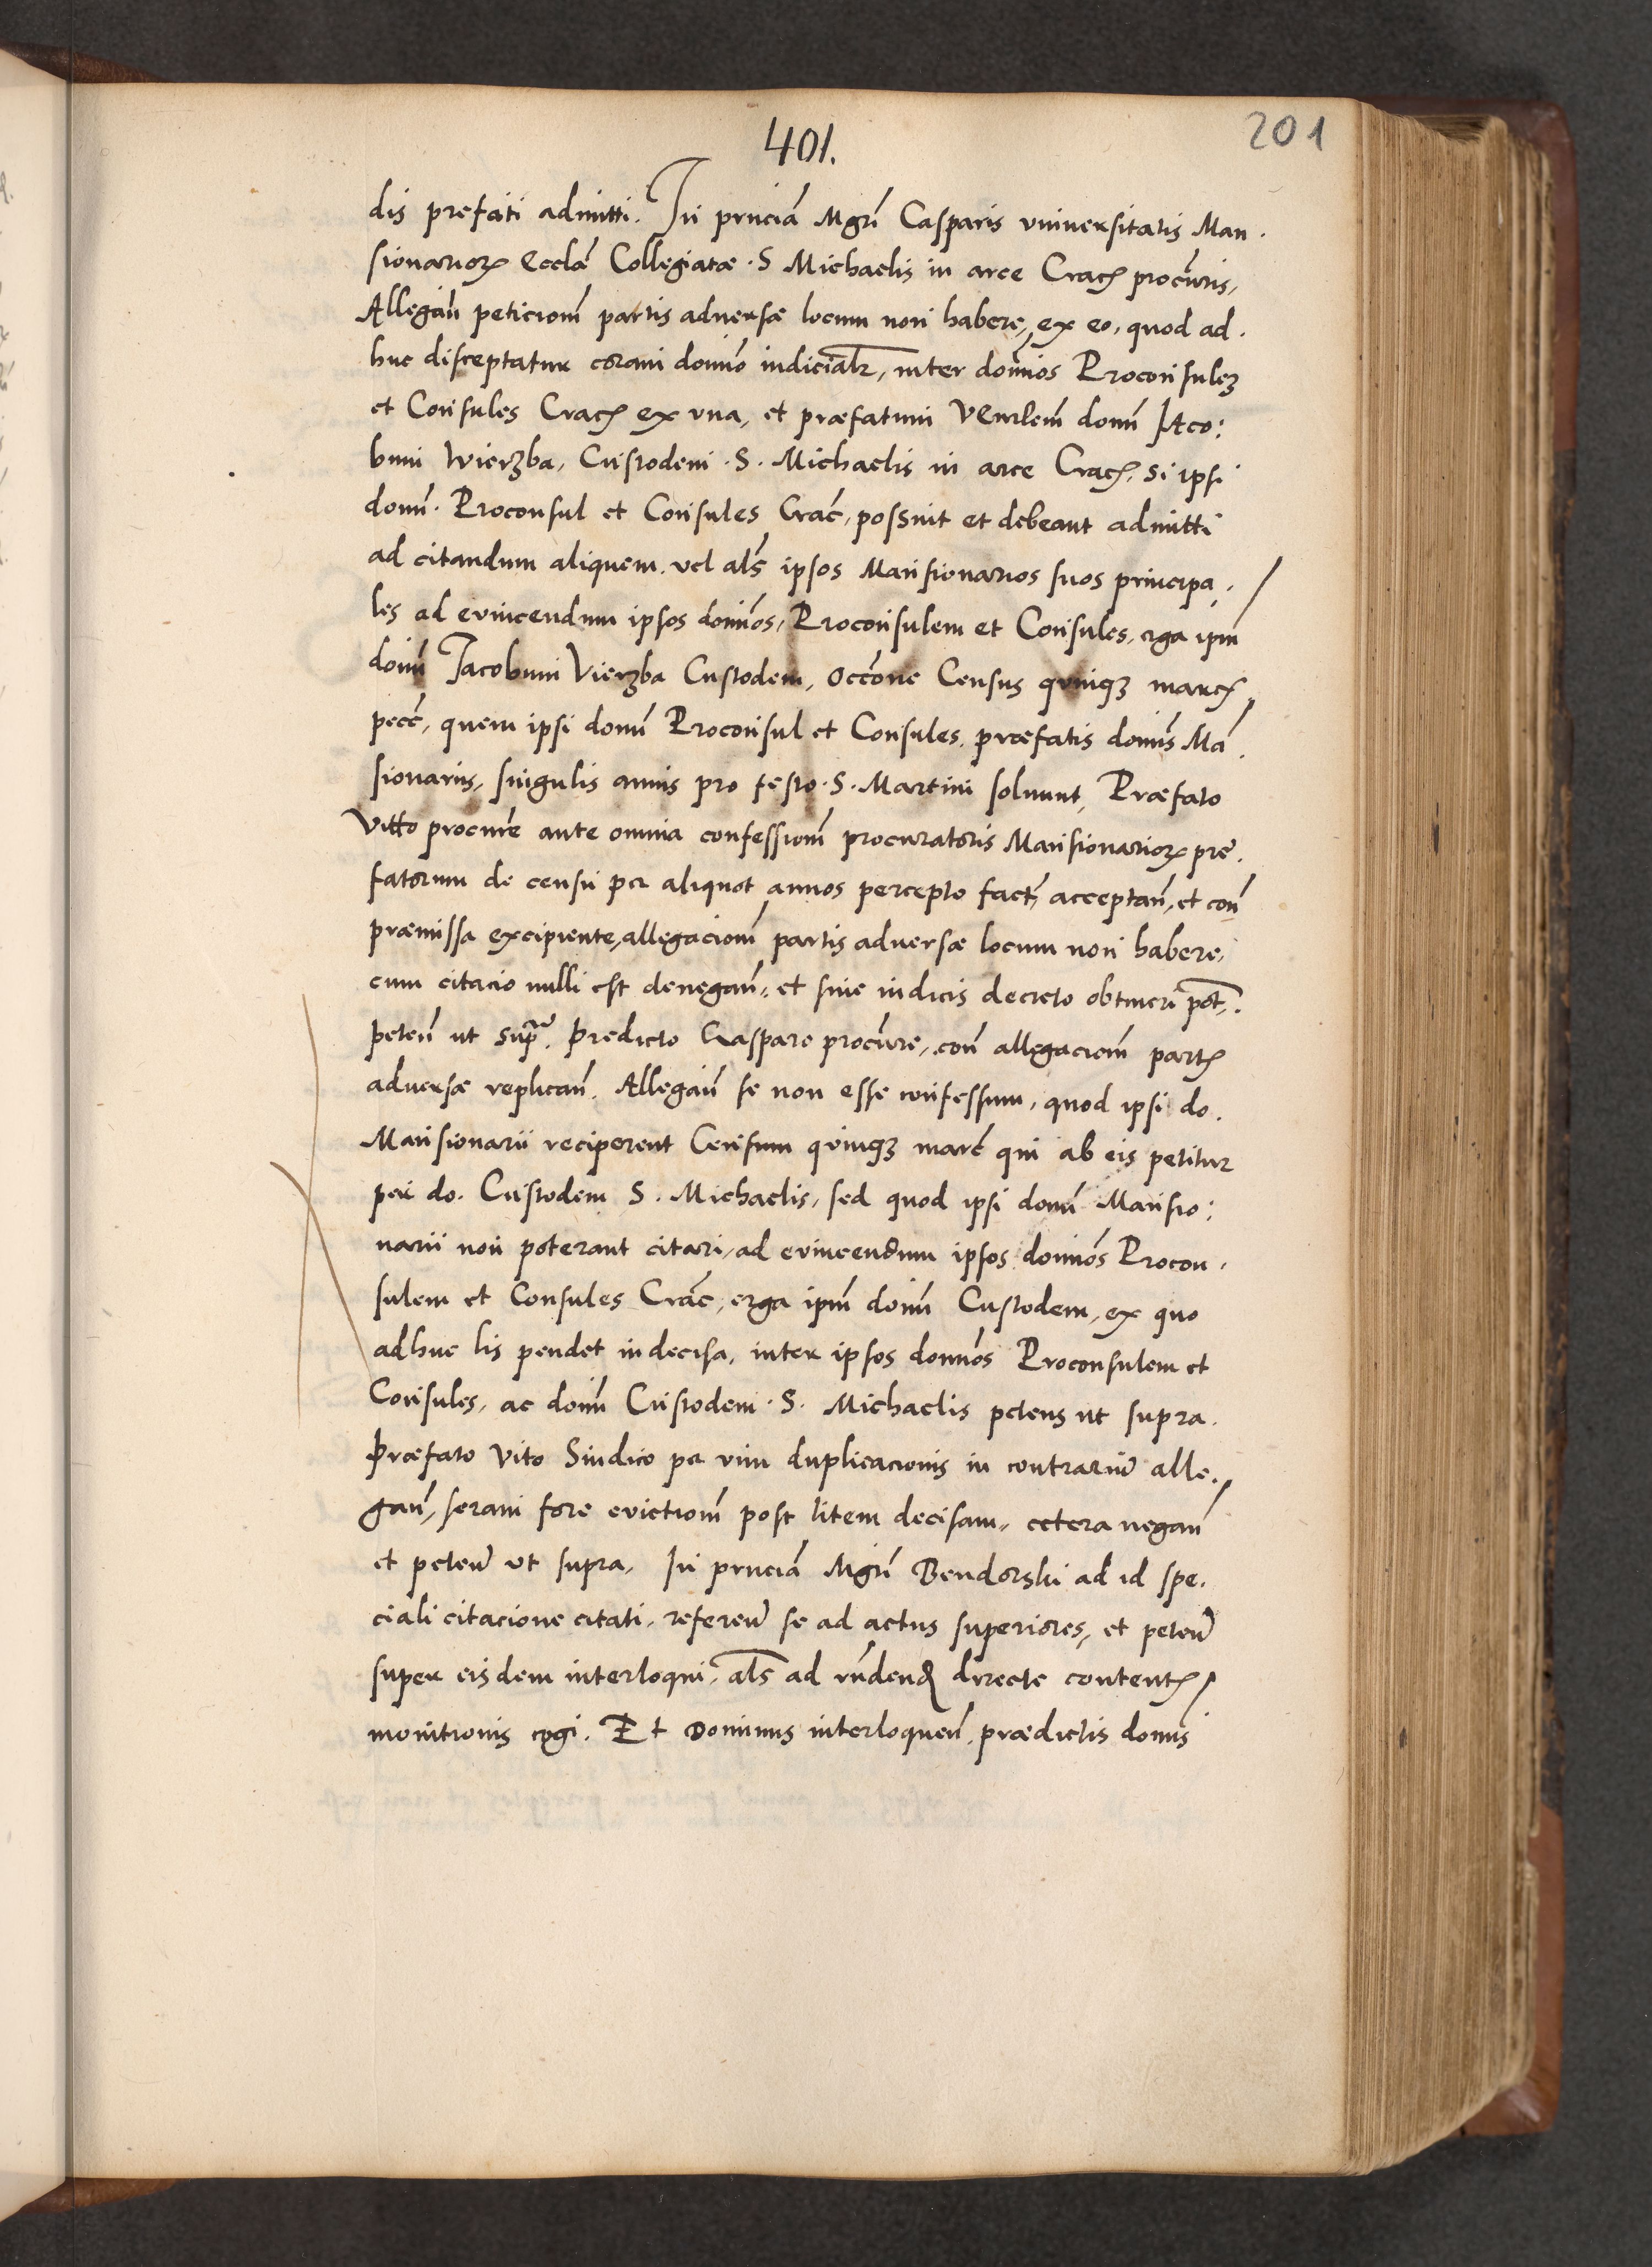 401.
201
dis prefati admitti. In pñciã Mgrĩ Casparis vniuersitatis Man.
sionarioꝝ Eccłã Collegiatæ · S Michaelis in arce Craꝯ procũris,
Allegañ peticionẽ partis aduersæ locum non habere, ex eo, quod ad.
huc disceptatur coram domĩo iudiciałr, inter domĩos Proconsuleꝫ
et Consules Craꝯ ex vna, et præfatum Veñłem domũ Iaco:
bum Wierzba, Custodem · S · Michaelis in arce Craꝯ. Si ipsi
domñ. Proconsul et Consules Crac̃, possint et debeant admitti
ad citandum aliquem. vel als̃ ipsos Mansionarios suos principa.
les ad euincendum ipsos domĩos, Proconsulem et Consules, erga ipm̃
domñ Jacobum Vierzba Custodem, occõne Census quinqꝫ marcꝯ
pecẽ, quem ipsi domñ Proconsul et Consules, præfatis domĩs Mã
sionariis, singulis annis pro festo · S · Martini soluunt, Præfato
Vitto procurẽ ante omnia confessionẽ procuratoris Mansionarioꝝ prę.
fatorum de censu per aliquot annos percepto fact̃, acceptañ, et coñ
præmissa excipiente, allegacionẽ partis aduersæ locum non habere,
cum citacio nulli est denegañ, et sine iudicis decreto obtineri põt.
peteñ ut supra. Predicto Caspare procũre, coñ allegacionẽ partꝯ
aduersæ replicañ. Allegañ se non esse confessum, quod ipsi do.
Mansionarii reciperent Censum quinqꝫ marc̃ qui ab eis petitur
per do. Custodem S. Michaelis, sed quod ipsi domñ Mansio:
narii non poterant citari, ad euincendum ipsos domĩos Procon.
sulem et Consules Crac̃, erga ipm̃ domñ Custodem, ex quo
adhuc lis pendet indecisa, inter ipsos domĩos Proconsulem et
Consules, ac domñ Custodem · S. Michaelis petens ut supra.
Præfato Vito Sindico per vim duplicacionis in contrariũ alle.
gañ, seram fore evictionẽ post litem decisam, cetera negañ
et peteñ ut supra. In pñciã Mgrĩ Bendorski ad id spe.
ciali citacione citati, refereñ se ad actus superiores, et peteñ
super eisdem interloqui, als̃ ad rñdendꝯ directe contentꝯ
monitionis cogi. Et Dominus interloqueñ, prædictis domĩs